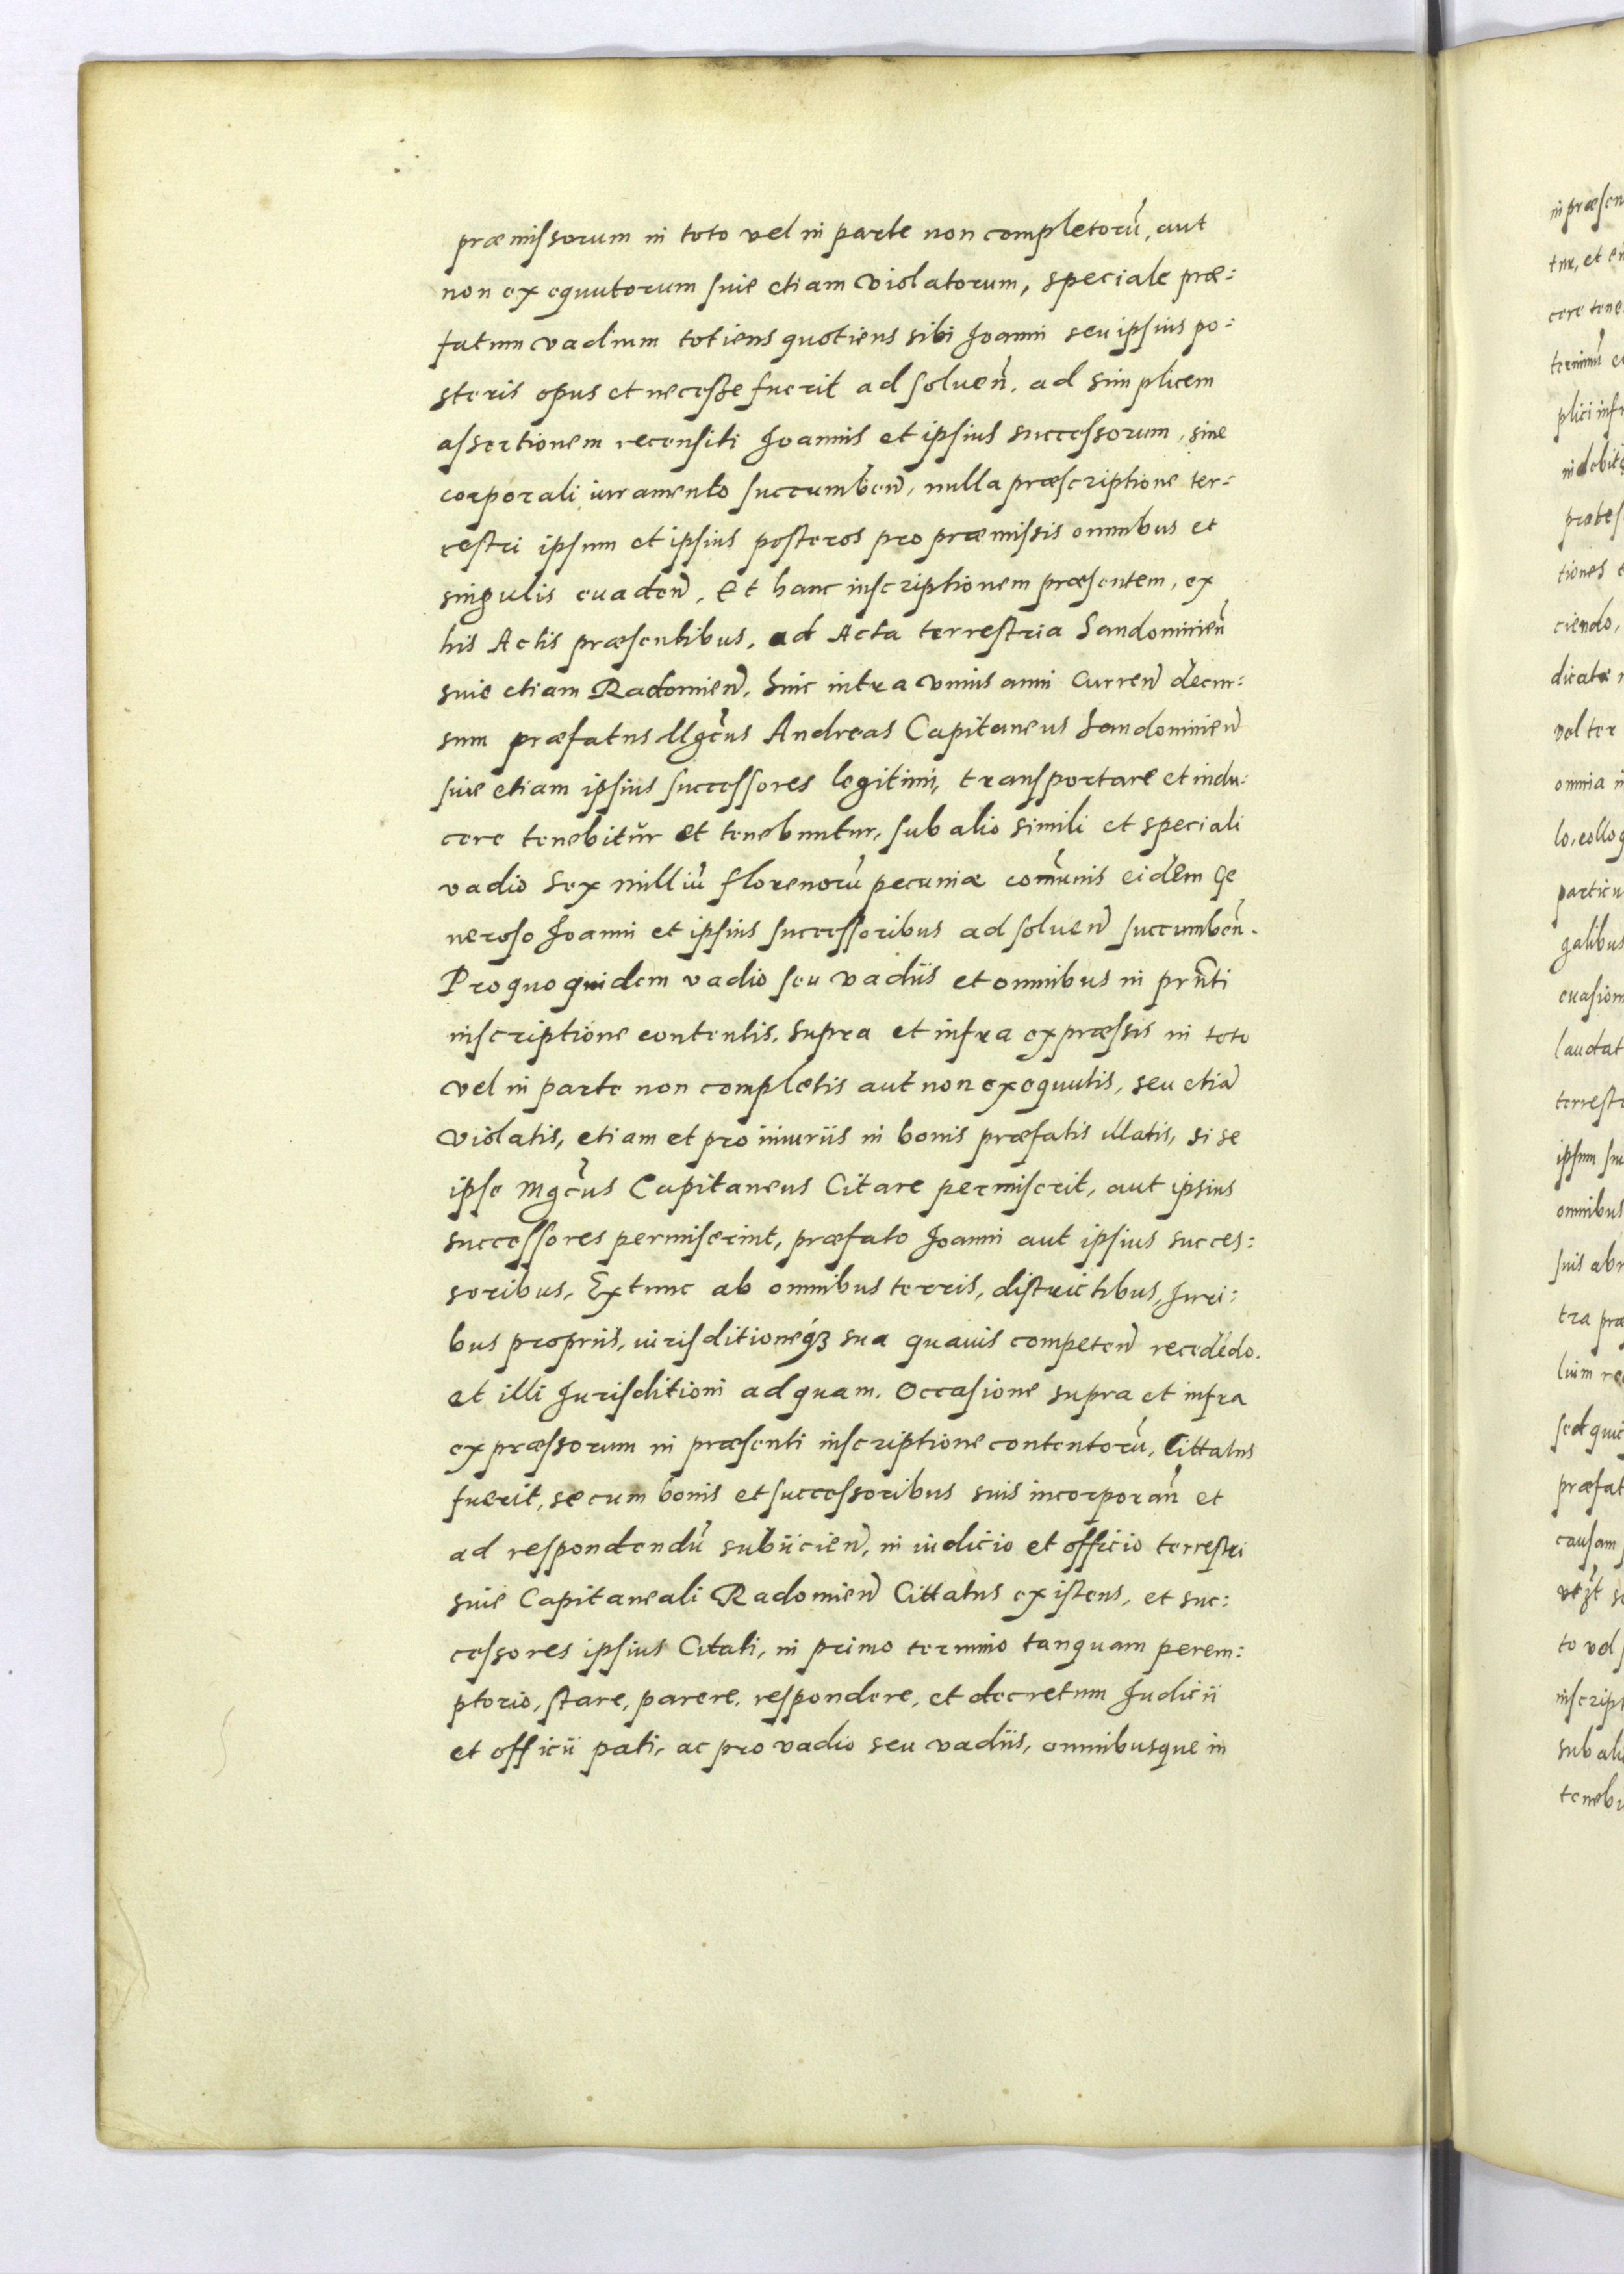 præmissorum in toto vel in parte non completorũ, aut
non exequutorum siue etiam violatorum, speciale præ:
fatum vadium totiens quotiens sibi Joanni seu ipsius po:
steris opus et necesse fuerit ad soluen̄. ad simplicem
assertionem recensiti Joannis et ipsius successorum, sine
corporali iuramento succumben̄, nulla præscriptione ter:
restri ipsum et ipsius posteros pro præmissis omnibus et
singulis euaden̄. Et hanc inscriptionem præsentem, ex
his Actis præsentibus. ad Acta terrestria Sandomirien̄
siue etiam Radomien̄. hinc intra vnius anni Curren̄ decur:
sum præfatus Mgcũs Andreas Capitaneus Sandomirien̄
siue etiam ipsius successores legitimi, transportare et indu:
cere tenebitur et tenebuntur, sub alio simili et speciali
vadio Sex milliũ florenorũ pecuniæ com̃unis eidem Ge
neroso Joanni et ipsius successoribus ad soluen̄ succumben̄.
Pro quo quidem vadio seu vadiis et omnibus in prn̄ti
inscriptione contentis, supra et infra expræssis in toto
vel in parte non completis aut non exequutis, seu etiã
violatis, etiam et pro iniuriis in bonis præfatis illatis, si se
ipse Mgcũs Capitaneus Citare permiserit, aut ipsius
successores permiserint, præfato Joanni aut ipsius succes:
soribus, Extunc ab omnibus terris, districtibus, Juri:
bus propriis, iurisditioneq́ʒ sua quauis competen̄ recedẽdo.
et illi Jurisditioni ad quam. Occasione supra et infra
expræssorum in præsenti inscriptione contentorũ, Cittatus
fuerit, se cum bonis et successoribus suis incorporan̄ et
ad respondendũ subiicien̄, in iudicio et officio terrestri
siue Capitaneali Radomien̄ Cittatus existens, et suc:
cessores ipsius Citati, in primo termino tanquam perem:
ptorio, stare, parere, respondere, et decretum Judicii
et officii pati, ac pro vadio seu vadiis, omnibusque in